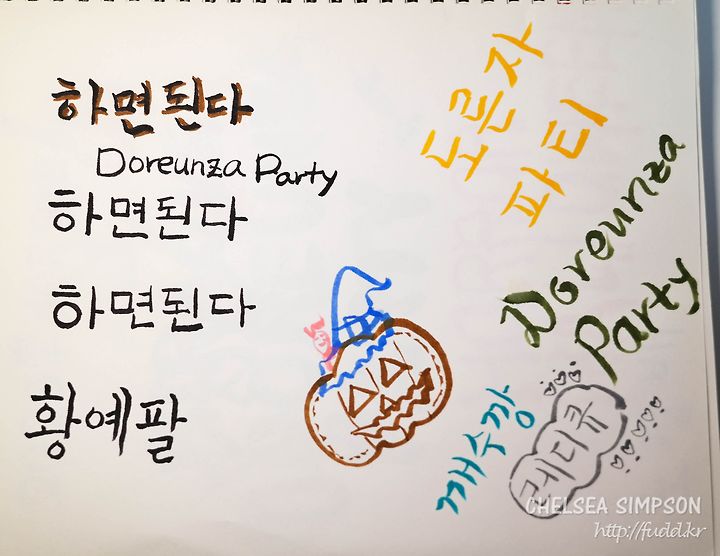 하면된다
Doreunza Party
하면된다
하면된다
황예팔
도른자
파티
Doreunza
Party
깨수깡
레디큐
CHELSEA SIMPSON
http://fudd.kr